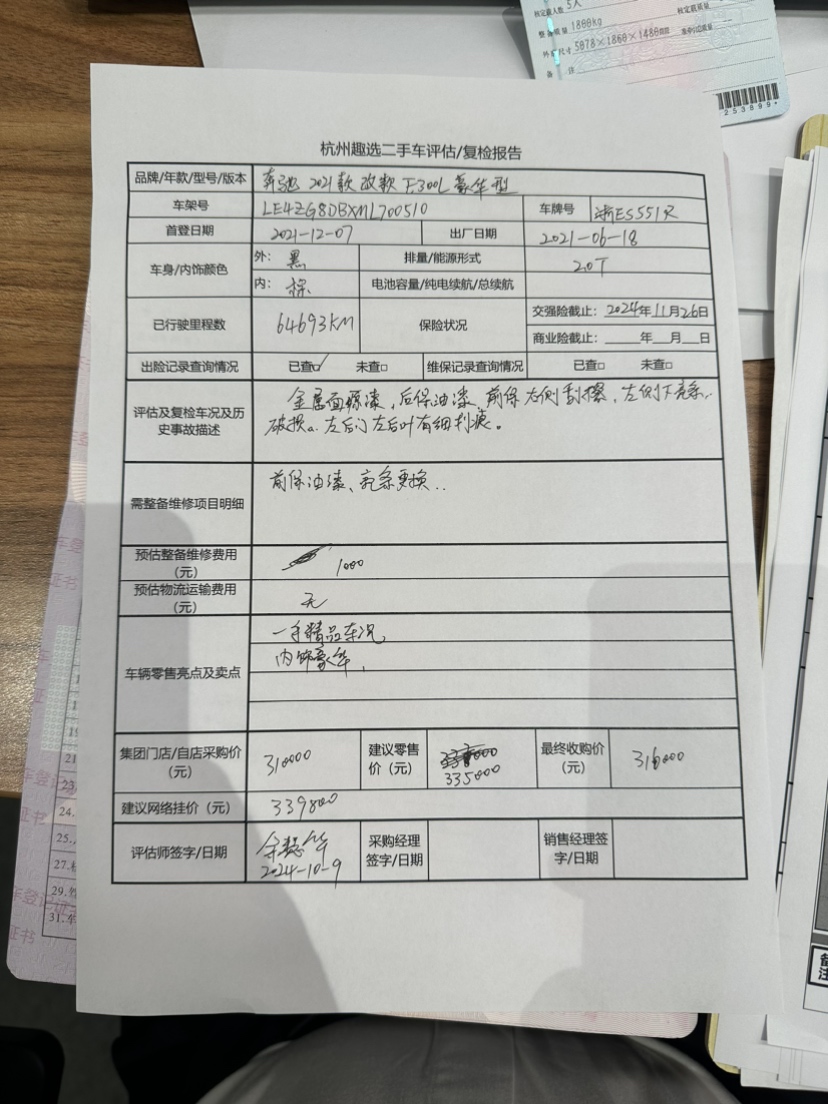 核定载人数 5人
整备质量 1800kg
核定载质量
外廓尺寸 5078×1860×1480mm
备 注
253899+
杭州趣选二手车评估/复检报告
品牌/年款/型号/版本 奔驰 2021款 改款 E300L 豪华型
车架号 LE4ZG8DBXML700510 车牌号 浙E5551R
首登日期 2021-12-07 出厂日期 2021-06-18
车身/内饰颜色 外: 黑 排量/能源形式 2.0T
内: 棕 电池容量/纯电续航/总续航
已行驶里程数 64693KM 保险状况 交强险截止: 2024年11月26日
商业险截止: 年 月 日
出险记录查询情况 已查□✓ 未查□ 维保记录查询情况 已查□ 未查□
评估及复检车况及历史事故描述 金属面原漆,后保油漆 前保右侧刮擦,左侧下亮条
破损。左后门左后叶有细划痕。
需整备维修项目明细 前保油漆、亮条更换..
预估整备维修费用(元) 1000
预估物流运输费用(元) 无
车辆零售亮点及卖点 一手精品车况,
内饰豪华,
集团门店/自店采购价(元) 310000 建议零售价(元) 335000 最终收购价(元) 316000
建议网络挂价(元) 339800
评估师签字/日期 2024-10-9 采购经理签字/日期 销售经理签字/日期
24.
25.
27.
29.
31.
证书
备注